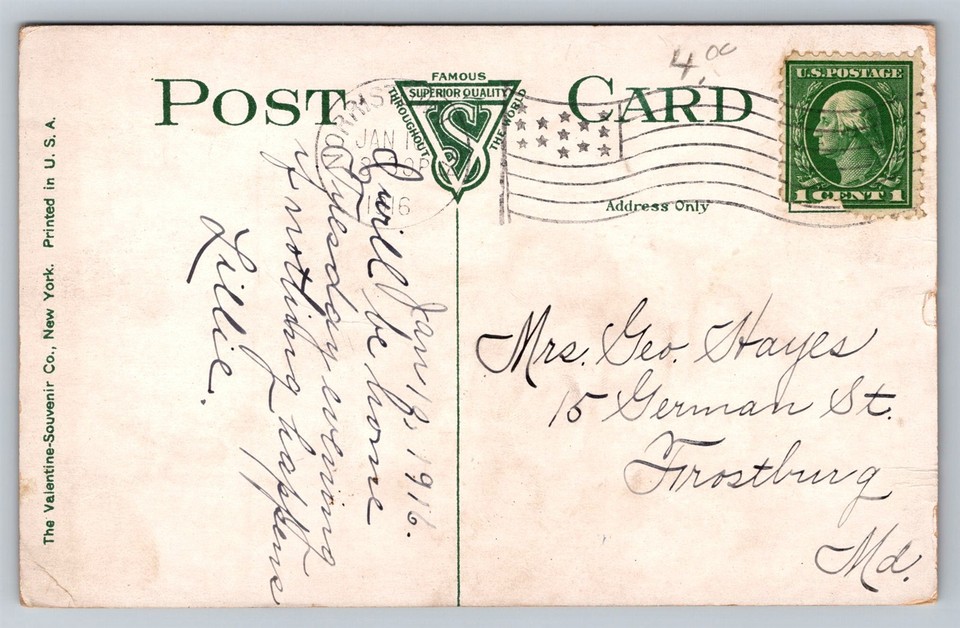 4.00
POST CARD
FAMOUS
SUPERIOR QUALITY
THROUGHOUT THE WORLD
VS
U.S. POSTAGE
1 CENT 1
NORRIST
JAN 1
1916
Address Only
The Valentine-Souvenir Co., New York. Printed in U. S. A.
Jan 17, 1916.
I will be home
Tuesday evening
if nothing happens
Lillie.
Mrs. Geo. Hayes
15 German St.
Frostburg
Md.